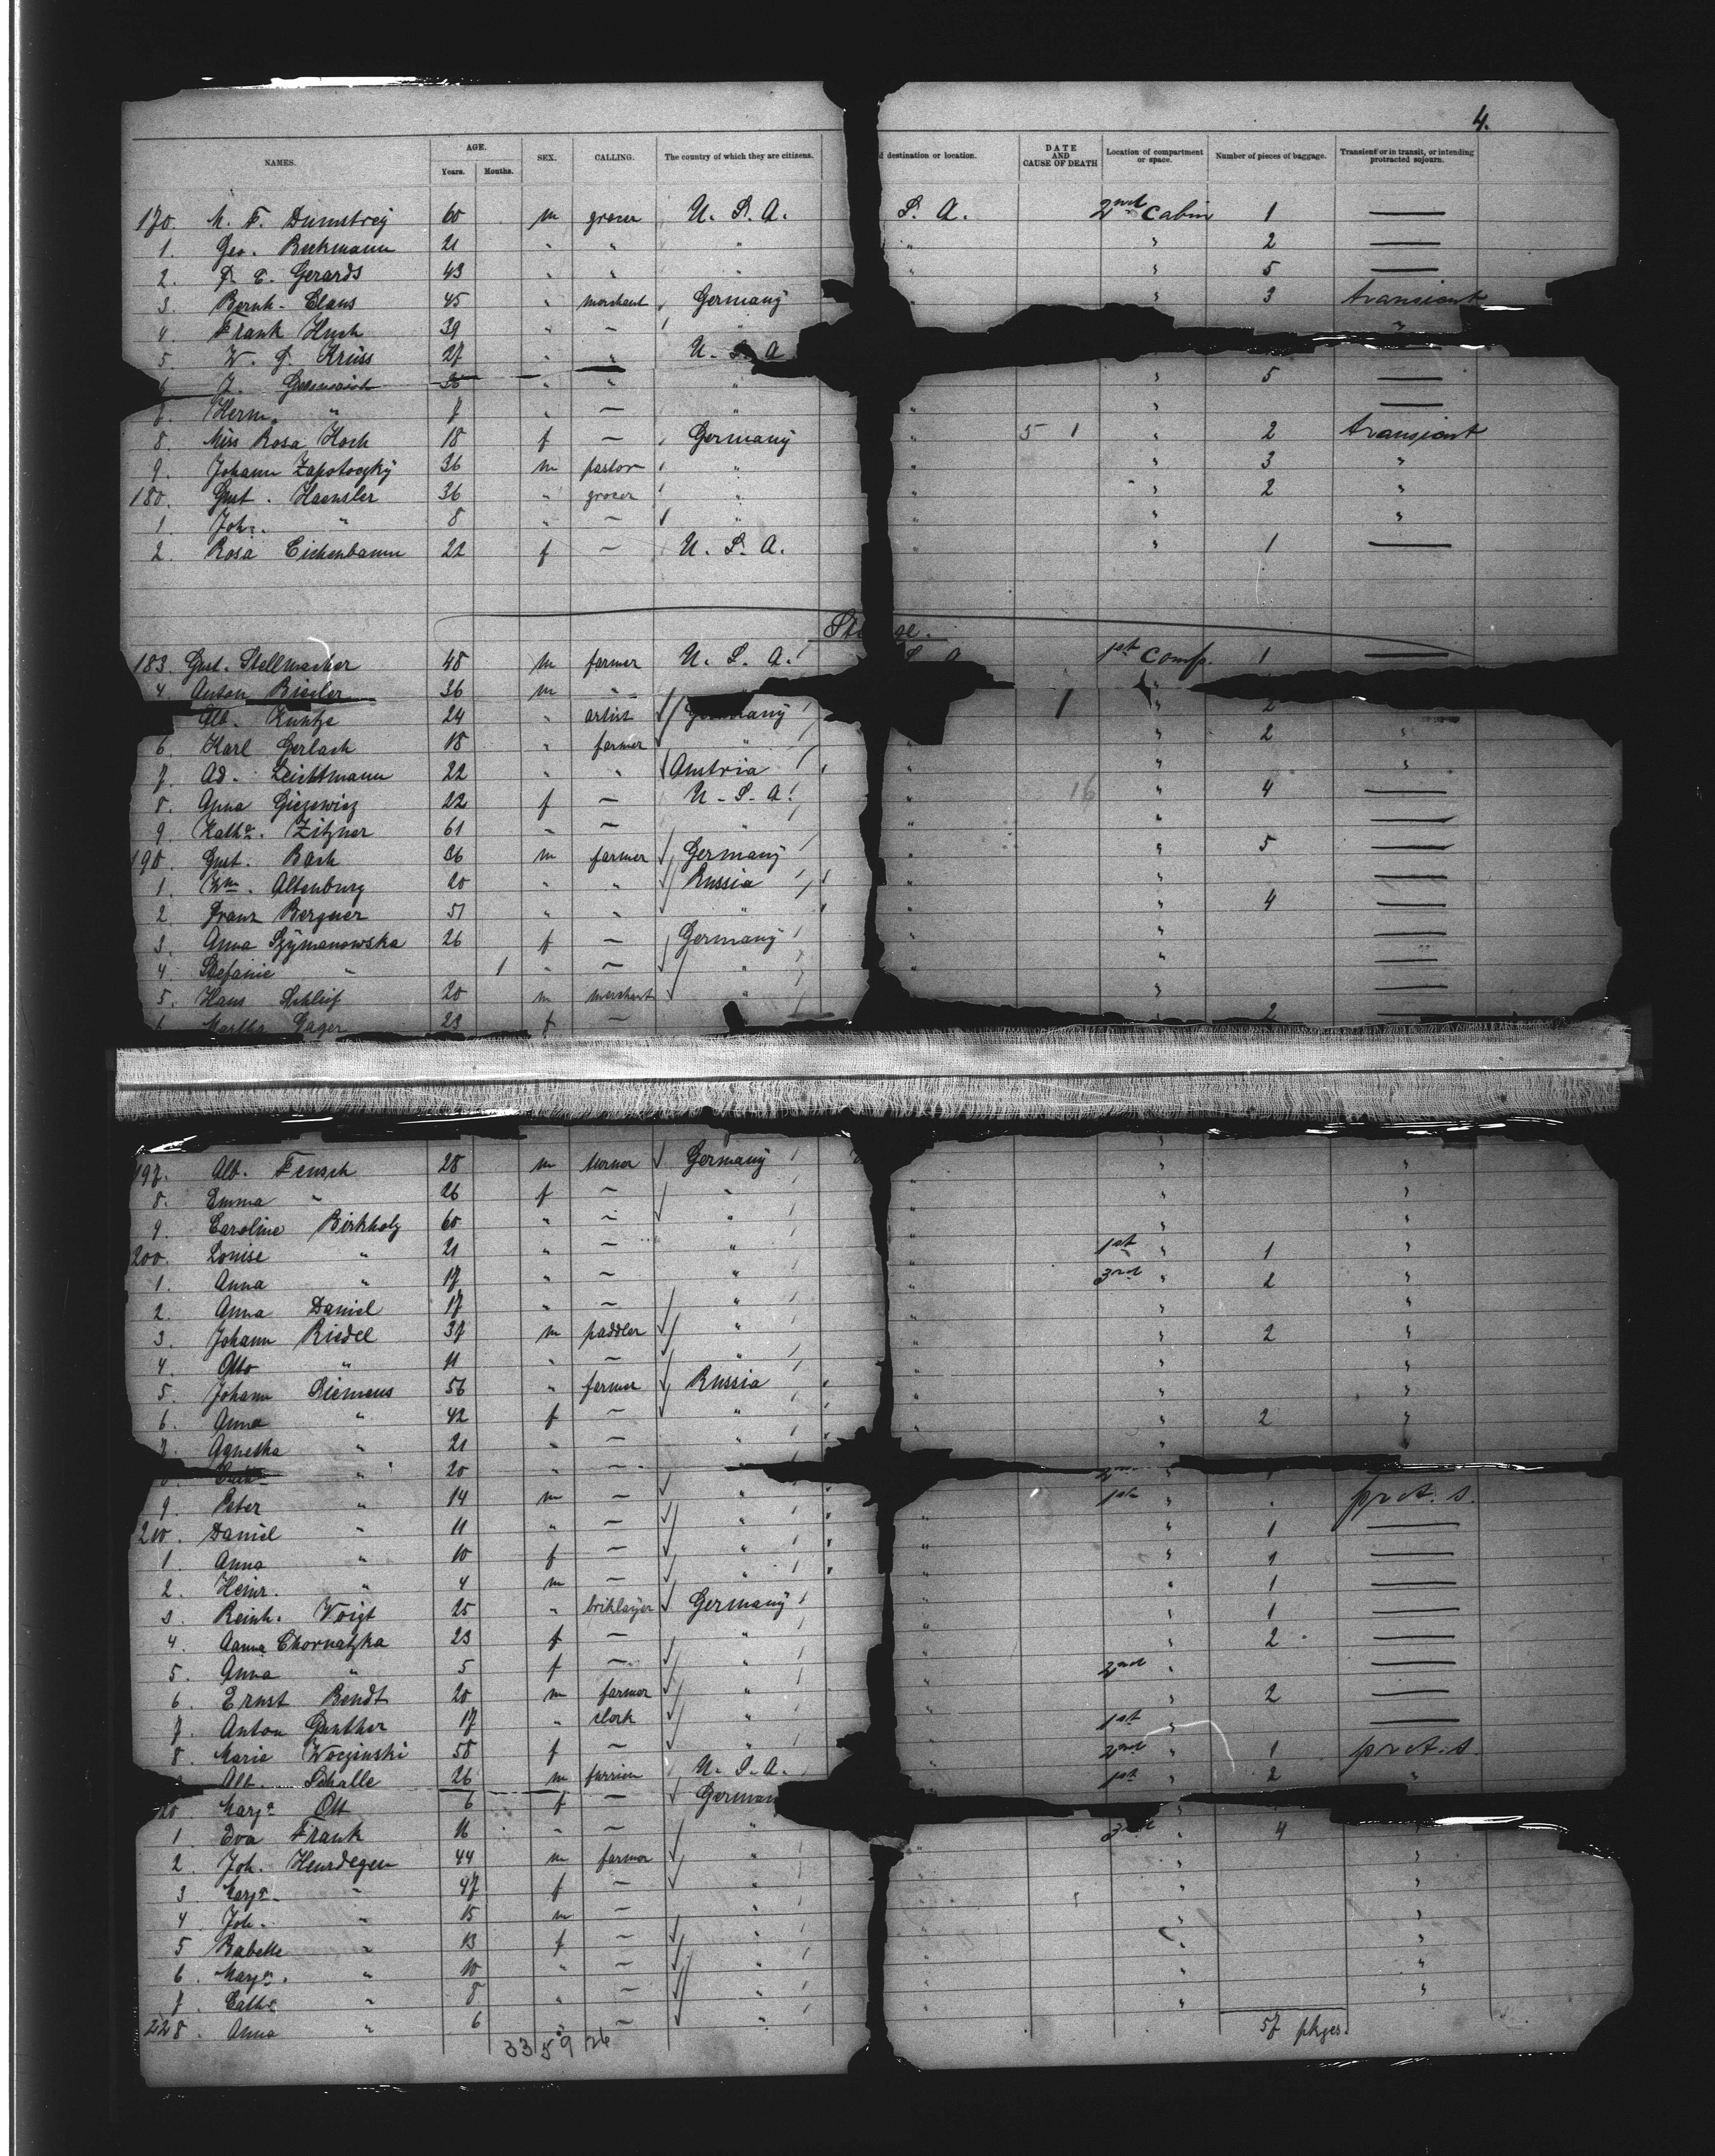 4.
NAMES. AGE. Years. Months. SEX. CALLING. The country of which they are citizens. d destination or location. DATE AND CAUSE OF DEATH Location of compartment or space. Number of pieces of baggage. Transient or in transit, or intending protracted sojourn.
170. M. F. Dumstrey 60 m grocer U. S. A. S. A. 2nd Cabin 1 —
1. Geo. Beckmann 21 " " " " " 2 —
2. E. Gerards 43 " " " " " 5 —
3. Bernh. Claus 45 " merchant Germany " 3 transient
4. Frank Huch 39 " — " "
5. W. J. Krüss 27 " " U. S. A
J. 36 " " " " 5 —
7. Herm. " 7 " — " " " —
8. Miss Rosa Koch 18 f — Germany " 5 1 " 2 transient
9. Johann Zapotoczky 36 m pastor " " " 3 "
180. Gust. Haensler 36 " grocer " " " 2 "
1. Joh. " 8 " — " " " "
2. Rosa Eichenbaum 22 f — U. S. A. " " 1 —
Ste ge.
183. Gust. Stellmacher 48 m farmer U. S. A. S. A 1st Comp. 1 —
4. Anton Biegler 36 m " "
Alb. Kuntze 24 " artist Germany 1 " 2
6. Karl Gerlach 18 " farmer " " " 2 "
7. Ad. Leichtmann 22 " " Austria " " "
8. Anna Giezewicz 22 f — U. S. A. " 16 " 4 —
9. Kath. Zitzner 61 " — " " " —
190. Gust. Bach 36 m farmer Germany " " 5 —
1. Wm. Altenburg 20 " " Russia " " —
2. Franz Bergner 51 " " " " " 4 —
3. Anna Szymanowska 26 f — Germany " " —
4. Stefanie " 1 " — " " " —
5. Hans Schleif 20 m merchant " " —
6. Martha Gager 23 f — 2 —
197. Alb. Fensch 28 m turner Germany " "
8. Emma " 26 f — " " " "
9. Caroline Birkholz 60 " — " " " "
200. Louise " 21 " — " " 1st " 1 "
1. Anna " 17 " — " " 3rd " 2 "
2. Anna Daniel 17 " — " " "
3. Johann Riedel 37 m paddler " " 2 "
4. Otto " 11 " — " " "
5. Johann Siemens 56 " farmer Russia " " "
6. Anna " 42 f — " " " 2 "
7. Agnetha " 21 " — " " "
" 20 " —
9. Peter " 14 m — " 1st " prot. s.
210. Daniel " 11 " — " " " 1 —
1. Anna " 10 f — " " " 1 —
2. Heinr. " 4 m — " " " 1 —
3. Reinh. Voigt 25 " briklayer Germany " " 1 —
4. Aanna Chornatzka 23 f — " " " 2 —
5. Anna " 5 f — " " 2nd " —
6. Ernst Bendt 20 m farmer " " " 2 —
7. Anton Gunther 17 " clerk " " 1st " —
8. Maria Woczinski 58 f — " " 2nd " 1 prot. s.
Alb. Schalle 26 m furrier U. S. A. 1st " 2 "
20. Marg. Ott 6 f — German
1. Eva Frank 16 " — " 3rd " 4
2. Joh. Heurdegen 44 m farmer " " " "
3. Marg. " 47 f — " " " "
4. Joh. " 15 m — " " " "
5. Babette " 13 f — " " " "
6. Marg. " 10 " — " " " "
7. Cath. " 8 " — " " " "
228. Anna " 6 " — "
57 pkges.
33 59 26